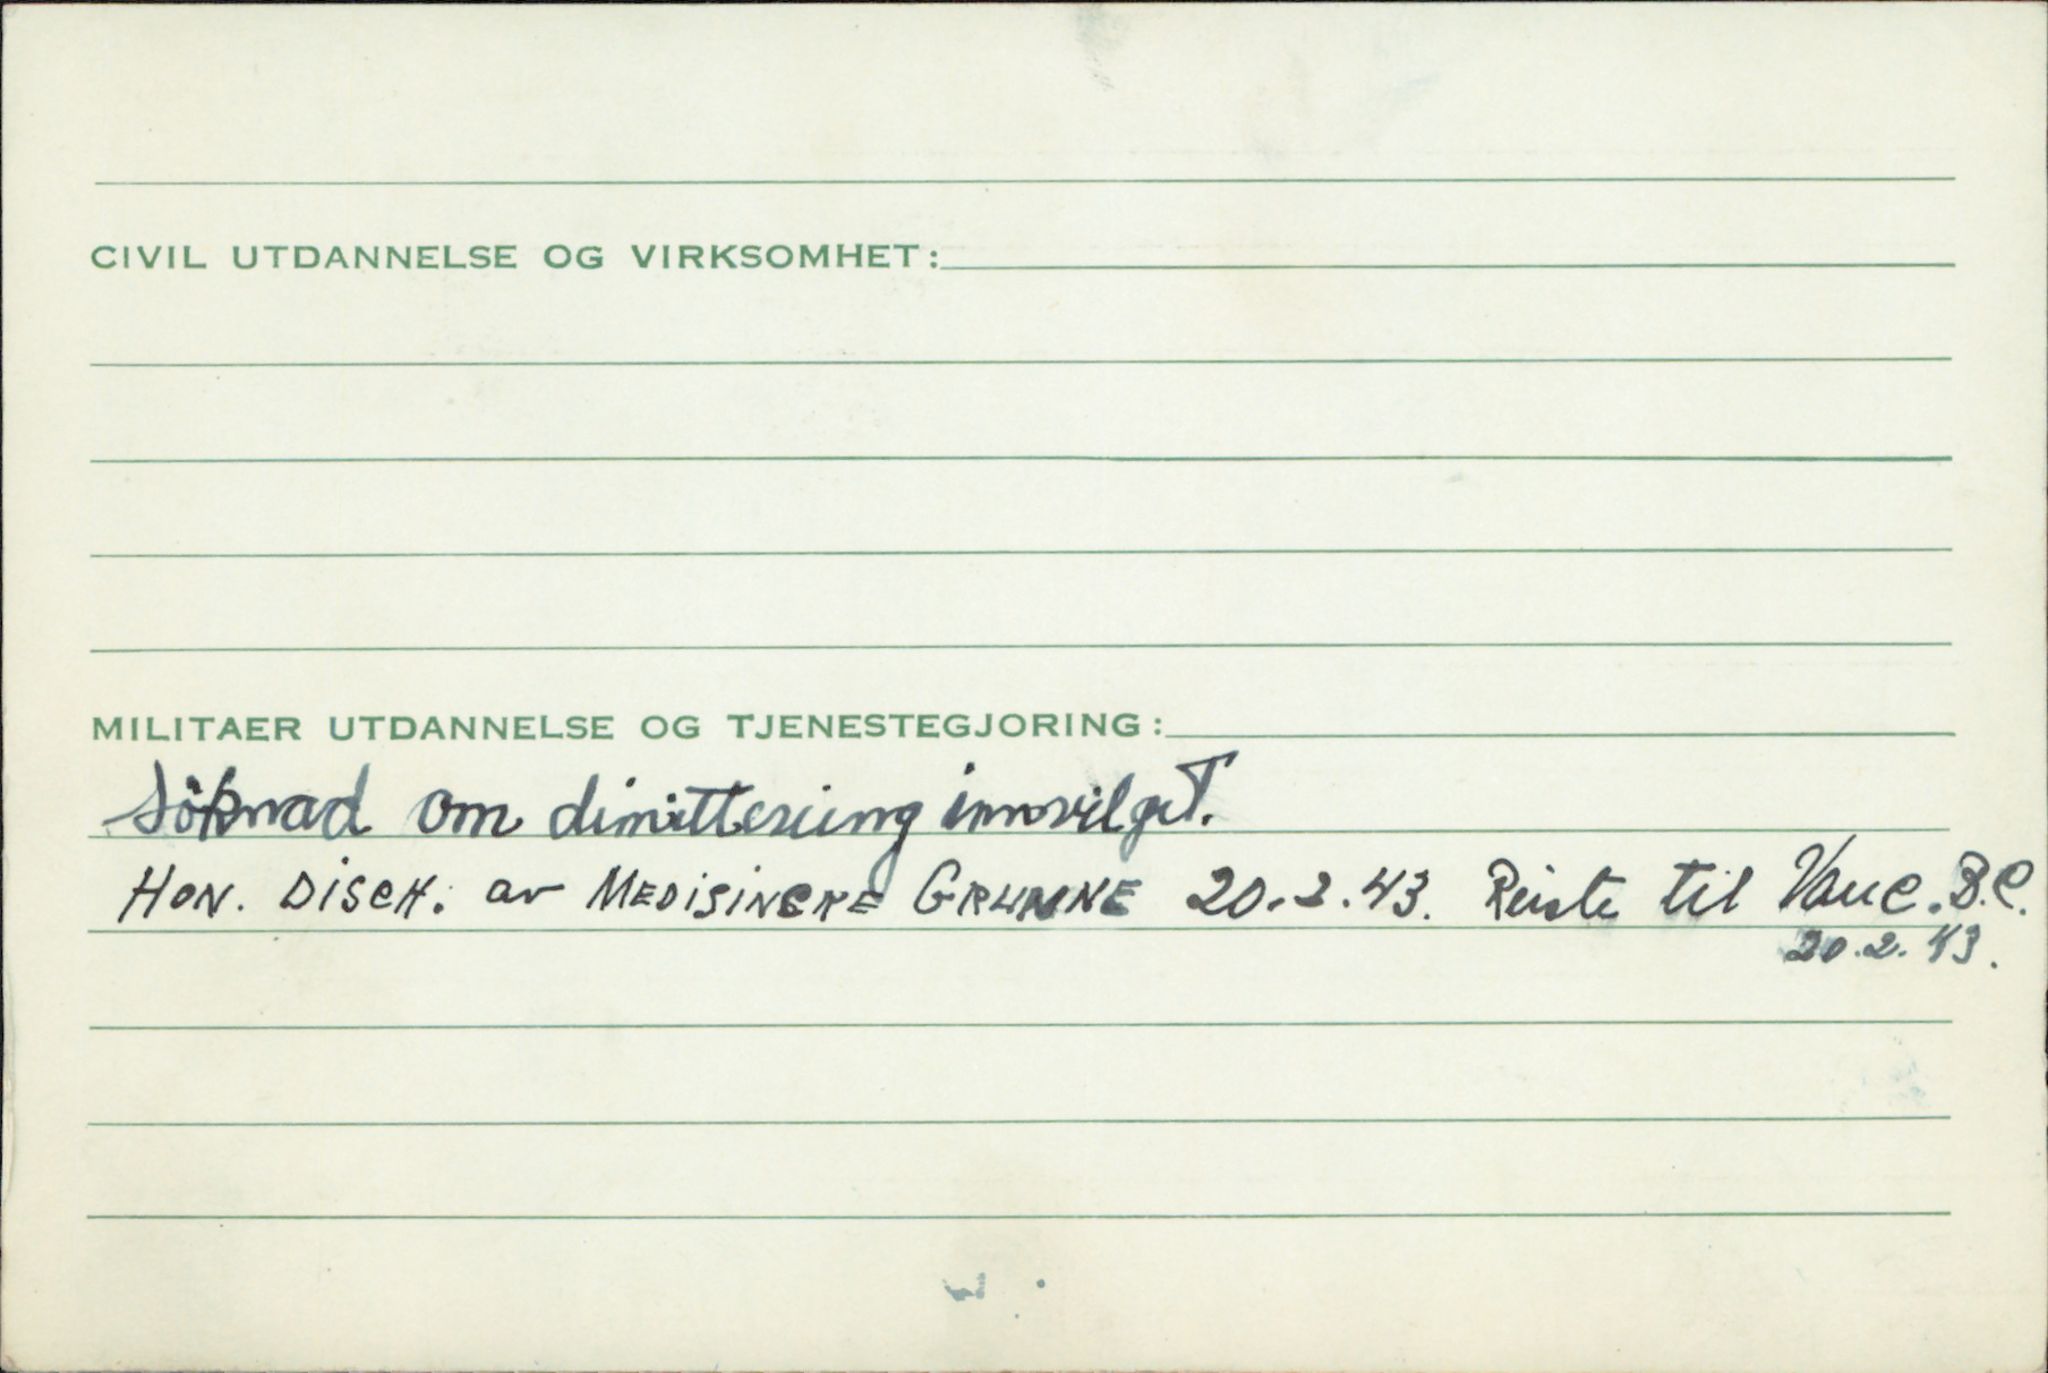 CIVIL UTDANNELSE OG VIRKSOMHET:
MILITAER UTDANNELSE OG TJENESTEGJORING:
Söknad om dimittering innvilget.
HON. DISCH. av MEDISINSKE GRUNNE 20.2.43. Reiste til Vanc. B.C.
20.2.43.